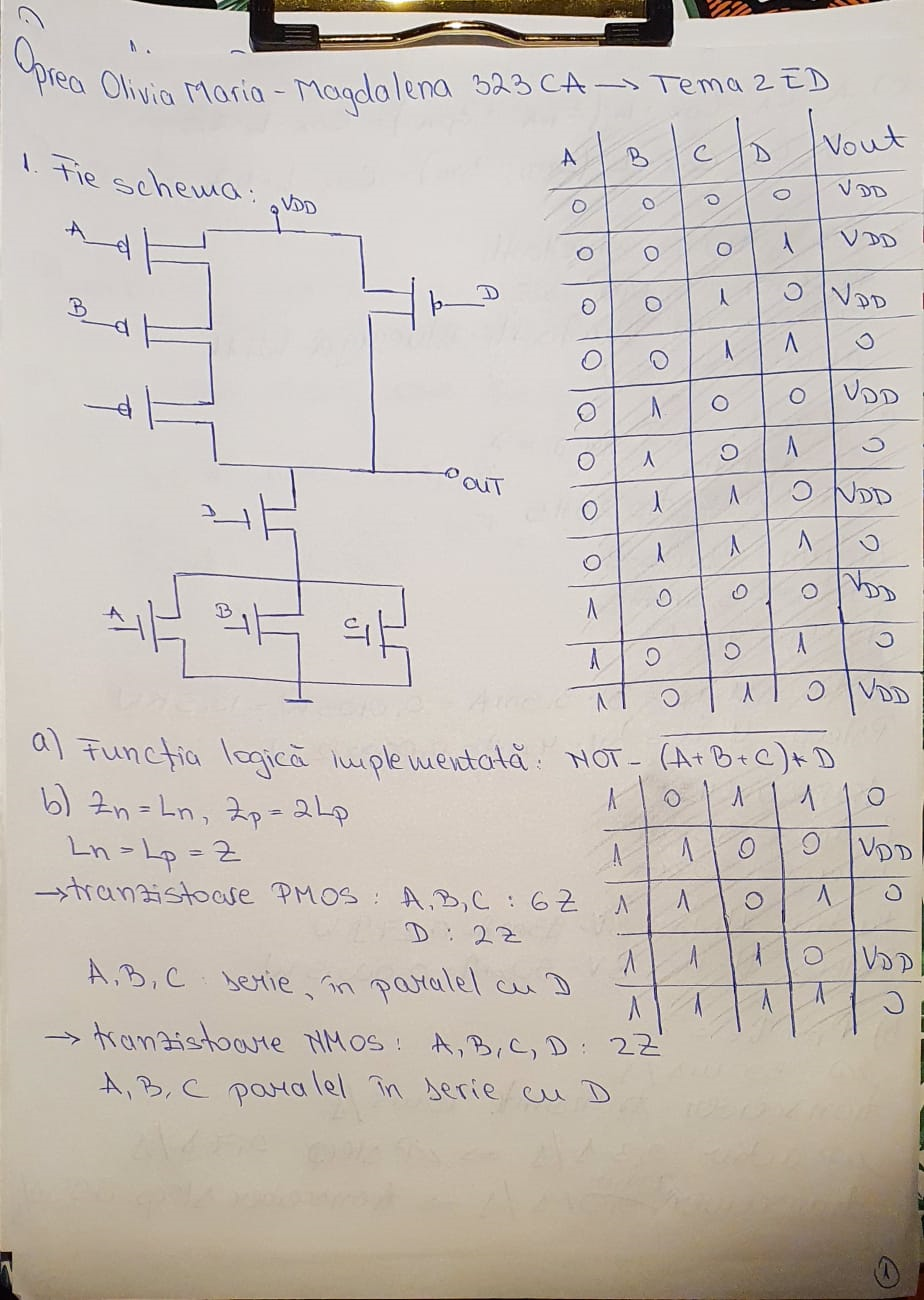 Oprea Olivia Maria - Magdalena 323 CA → Tema 2 ED
1. Fie schema:
VDD
A
B
D
OUT
D
A
B
C
A | B | C | D | Vout
0 | 0 | 0 | 0 | VDD
0 | 0 | 0 | 1 | VDD
0 | 0 | 1 | 0 | VDD
0 | 0 | 1 | 1 | 0
0 | 1 | 0 | 0 | VDD
0 | 1 | 0 | 1 | 0
0 | 1 | 1 | 0 | VDD
0 | 1 | 1 | 1 | 0
1 | 0 | 0 | 0 | VDD
1 | 0 | 0 | 1 | 0
1 | 0 | 1 | 0 | VDD
1 | 0 | 1 | 1 | 0
1 | 1 | 0 | 0 | VDD
1 | 1 | 0 | 1 | 0
1 | 1 | 1 | 0 | VDD
1 | 1 | 1 | 1 | 0
a) Funcția logică implementată: NOT - (A+B+C)*D
b) Zn = Ln, Zp = 2Lp
Ln = Lp = Z
→ tranzistoare PMOS : A, B, C : 6Z
D : 2Z
A, B, C serie, în paralel cu D
→ tranzistoare NMOS : A, B, C, D : 2Z
A, B, C paralel în serie cu D
1